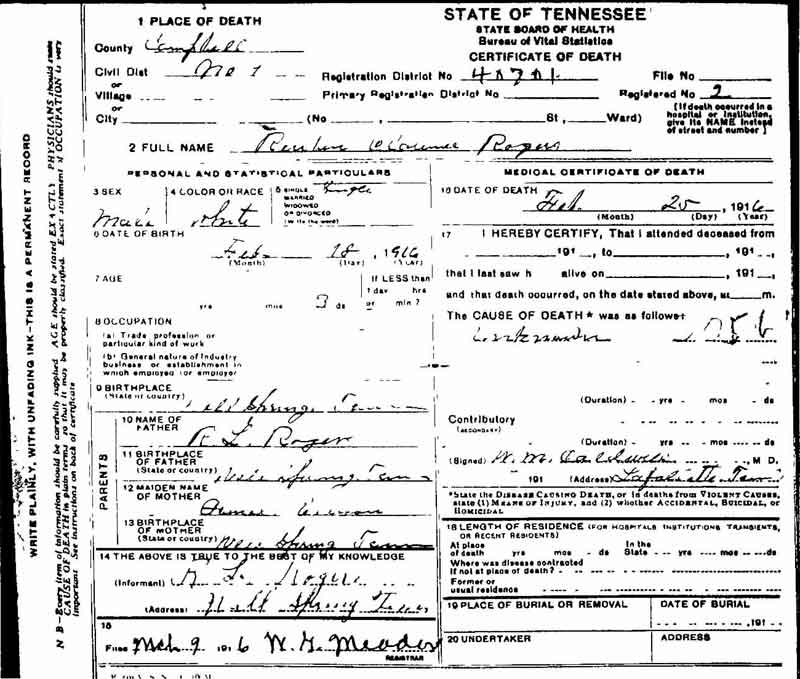 STATE OF TENNESSEE
STATE BOARD OF HEALTH
Bureau of Vital Statistics
CERTIFICATE OF DEATH
1 PLACE OF DEATH
County Campbell
Civil Dist No 1
Registration District No 40701 File No
or
Village
Primary Registration District No. Registered No 2
or
City (No , St, Ward)
[If death occurred in a
hospital or institution,
give its NAME instead
of street and number]
2 FULL NAME Rogers
PERSONAL AND STATISTICAL PARTICULARS
3 SEX
Male
4 COLOR OR RACE
white
5 SINGLE
MARRIED
WIDOWED
OR DIVORCED
(Write the word)
Single
6 DATE OF BIRTH
Feb 18, 1916
(Month) (Day) (Year)
7 AGE
If LESS than
1 day hrs
yrs mos 3 ds or min?
8 OCCUPATION
(a) Trade profession or
particular kind of work
(b) General nature of Industry
business or establishment in
which employed (or employer
9 BIRTHPLACE
(State or country) Well Spring Tenn
PARENTS
10 NAME OF
FATHER
R L Rogers
11 BIRTHPLACE
OF FATHER
(State or country) Well Spring Tenn
12 MAIDEN NAME
OF MOTHER
13 BIRTHPLACE
OF MOTHER
(State or country) Well Spring Tenn
14 THE ABOVE IS TRUE TO THE BEST OF MY KNOWLEDGE
(Informant) R. L. Rogers
(Address) Well Spring Tenn
15
Filed Mch 9 1916 W. G. Meador
REGISTRAR
MEDICAL CERTIFICATE OF DEATH
16 DATE OF DEATH
Feb. 20, 1916
(Month) (Day) (Year)
17 I HEREBY CERTIFY, That I attended deceased from
191 , to , 191
that I last saw h alive on , 191 ,
and that death occurred, on the date stated above, at m.
The CAUSE OF DEATH* was as follows:
(Duration) yrs mos ds
Contributory
(SECONDARY)
(Duration) yrs mos ds
(Signed) W. M. M D.
191 (Address) Lafollette Tenn
*State the DISEASE CAUSING DEATH, or in deaths from VIOLENT CAUSES,
state (1) MEANS OF INJURY, and (2) whether ACCIDENTAL, SUICIDAL, or
HOMICIDAL
18 LENGTH OF RESIDENCE (FOR HOSPITALS INSTITUTIONS TRANSIENTS,
OR RECENT RESIDENTS)
At place
of death yrs mos ds
In the
State yrs mos ds
Where was disease contracted
If not at place of death?
Former or
usual residence
19 PLACE OF BURIAL OR REMOVAL
DATE OF BURIAL
, 191
20 UNDERTAKER
ADDRESS
WRITE PLAINLY, WITH UNFADING INK—THIS IS A PERMANENT RECORD
N B—Every item of information should be carefully supplied. AGE should be stated EXACTLY PHYSICIANS should state
CAUSE OF DEATH in plain terms so that it may be properly classified. Exact statement of OCCUPATION is very
important. See instructions on back of certificate